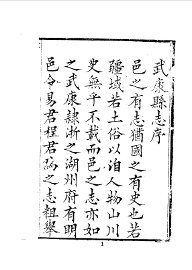 武康縣志序
邑之有志猶國之有史也若
疆域若土俗以洎人物山川
史無乎不載而邑之志亦如
之武康隷浙之湖州府有明
邑令易君程君病之志粗舉
1